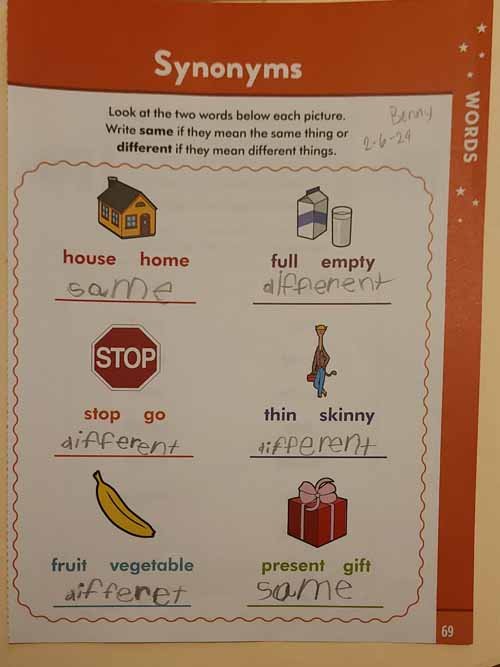 Synonyms
Look at the two words below each picture.
Write same if they mean the same thing or
different if they mean different things.
Benny
2-6-24
WORDS
house home
same
full empty
diffierent
STOP
stop go
different
thin skinny
different
fruit vegetable
differet
present gift
same
69